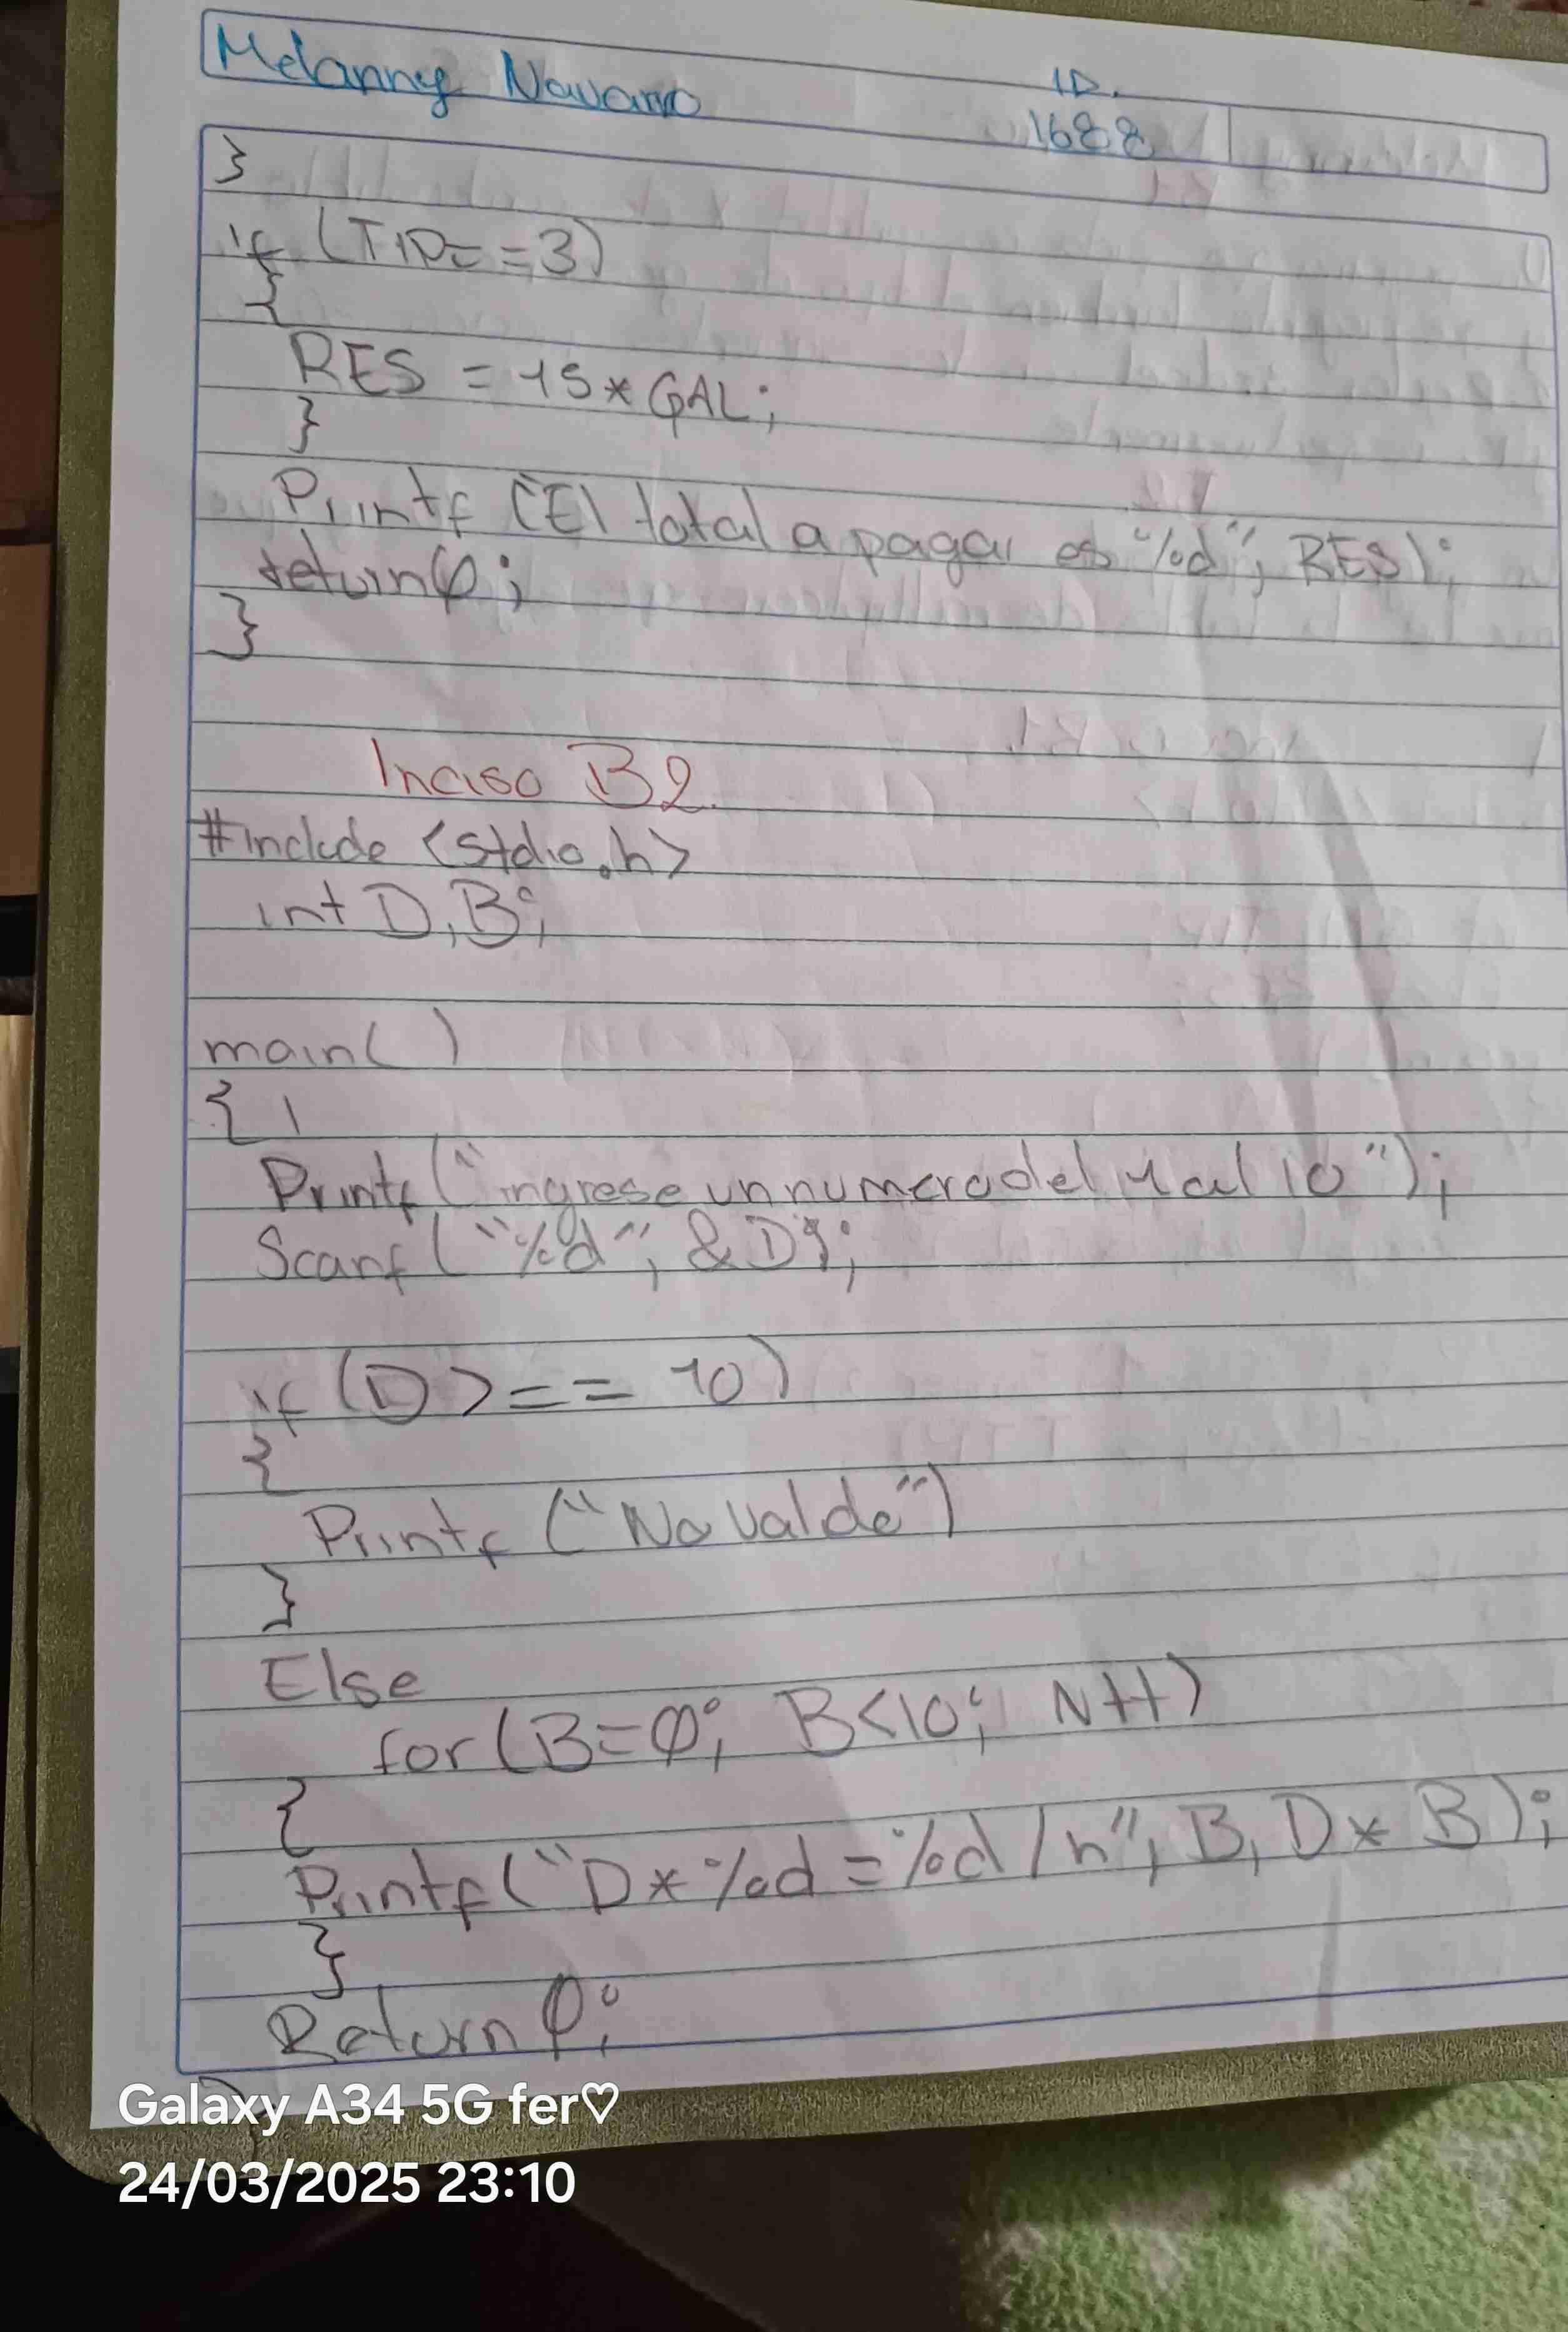 Melanny Navarro
ID.
1688
}
if (TIP==3)
{
RES = 15 * GAL;
}
Printf ("El total a pagar es %d", RES);
return 0;
}
Inciso B2.
#include <stdio.h>
int D, B;
main( )
{
Printf ("ingrese un numero del 1 al 10");
Scanf ("%d", &D);
if (D >== 10)
{
Printf ("No valde")
}
Else
for (B=0; B<10; N++)
{
Printf ("D * %d = %d /n", B, D * B);
}
Return 0;
Galaxy A34 5G fer♡
24/03/2025 23:10